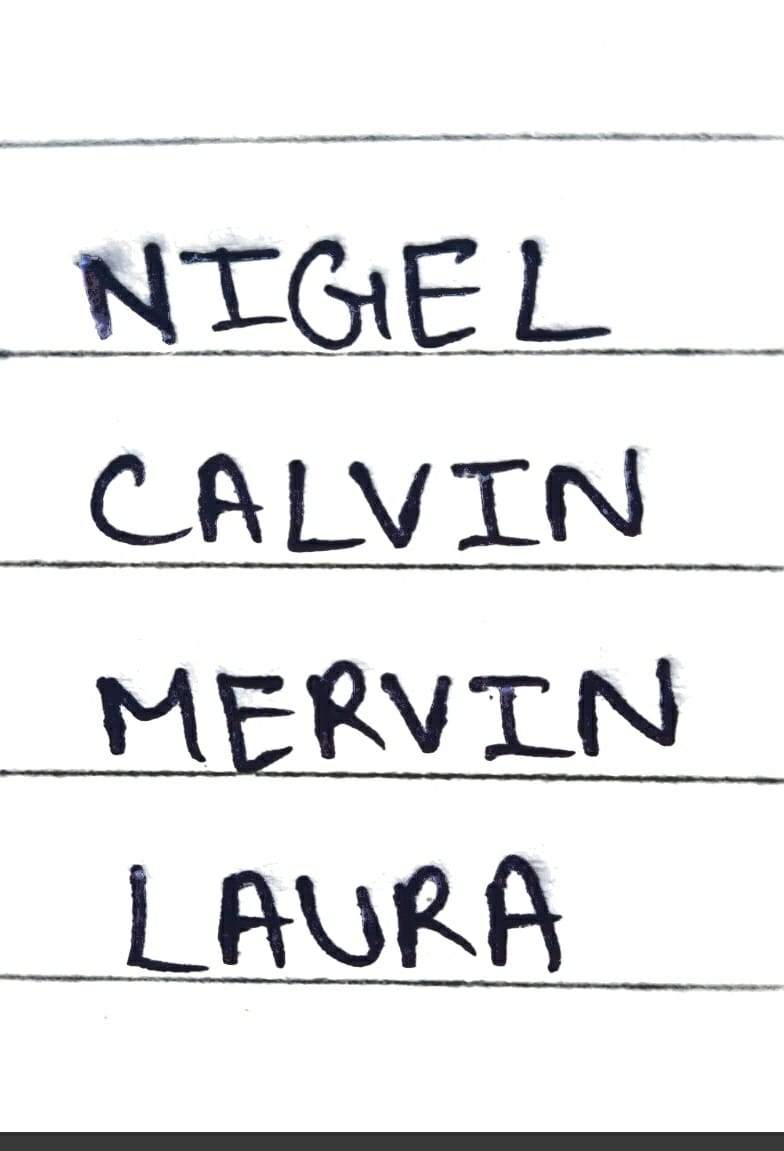 NIGEL
CALVIN
MERVIN
LAURA